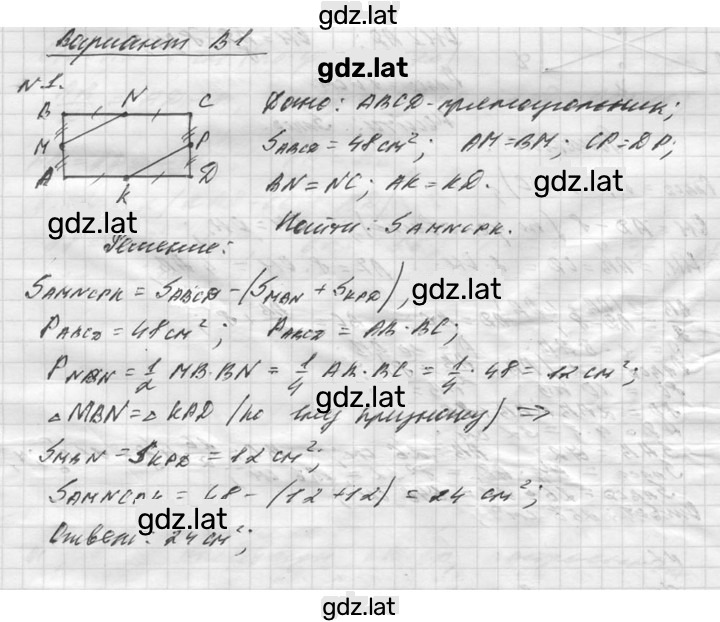 gdz.lat
Вариант В1
gdz.lat
N 1.
B N C
M P
A K D
Дано: ABCD - прямоугольник;
S ABCD = 48 см²; AM = BM; CP = DP;
BN = NC; AK = KD.
gdz.lat
Найти: S AMNCPK.
gdz.lat
Решение:
S AMNCPK = S ABCD - (S MBN + S KPD),
gdz.lat
P ABCD = 48 см²; P ABCD = AB · BC;
P MBN = 1/2 MB · BN = 1/4 AB · BC = 1/4 · 48 = 12 см²;
gdz.lat
△ MBN = △ KPD (по признаку) =>
S MBN = S KPD = 12 см²;
S AMNCPK = 48 - (12 + 12) = 24 см²;
gdz.lat
Ответ: 24 см²;
gdz.lat